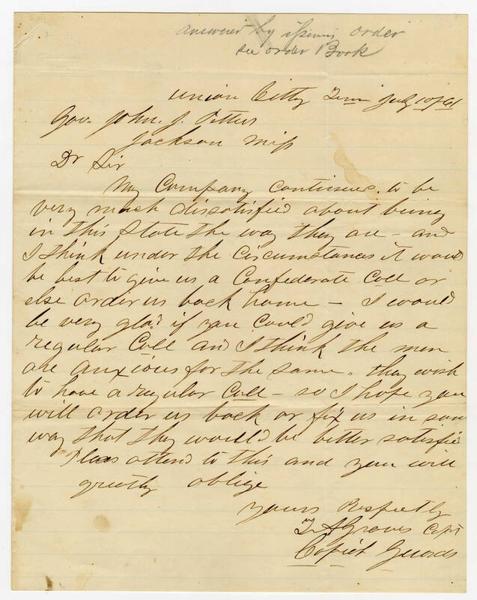 answered by issuing order
see order Book
Union Citty Tenn July 10/61
Gov. John J. Pettus
Jackson Miss
Dr Sir
My Company continues to be
very much disatisfied about being
in this State the way they are - and
I think under the circumstances it would
be best to give us a Confederate Call or
else order us back home - I would
be very glad if you could give us a
regular Call and I think the men
are anxious for the same. they wish
to have a regular Call - so I hope you
will order us back or fix us in som
way that they would be better satisfid
Pleas attend to this and you will
greetly oblige
yours Respectly
Graves Capt
Copiah Guards